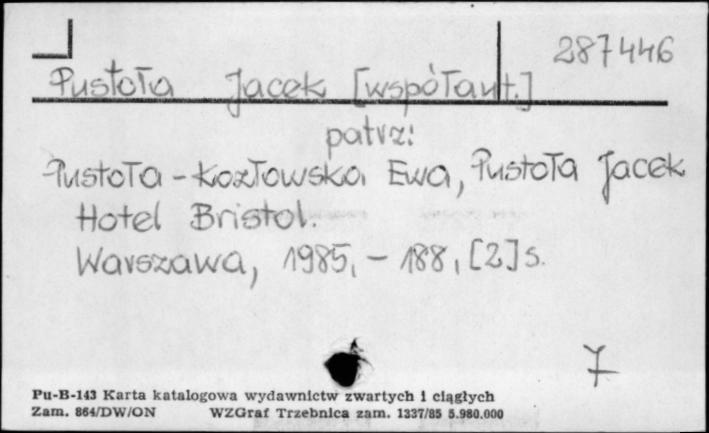 287446
Pustoła Jacek [współaut.]
patrz:
Pustoła-Kozłowska Ewa, Pustoła Jacek
Hotel Bristol.
Warszawa, 1985, - 188, [2] s.
7
Pu-B-143 Karta katalogowa wydawnictw zwartych i ciągłych
Zam. 864/DW/ON WZGraf Trzebnica zam. 1337/85 5.980.000